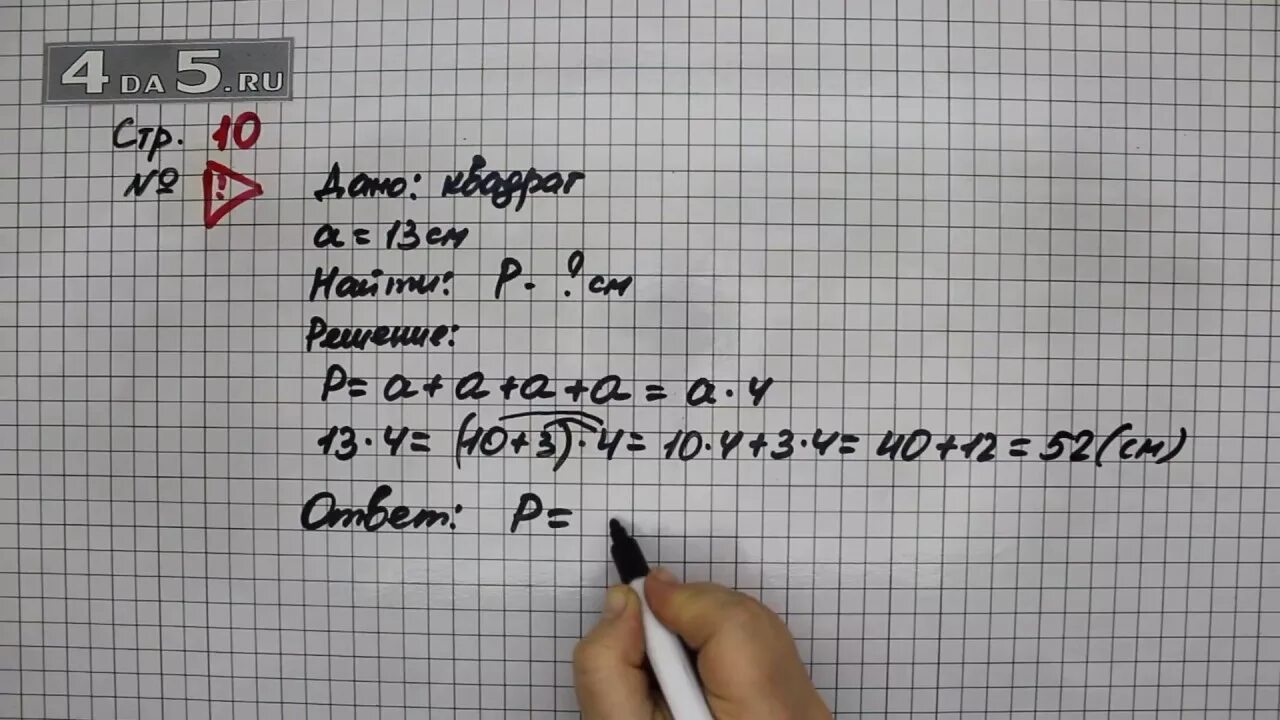 4DA5.RU
Стр. 10
№ !
Дано: квадрат
a = 13 см
Найти: P - ? см
Решение:
P = a + a + a + a = a · 4
13 · 4 = (10 + 3) · 4 = 10 · 4 + 3 · 4 = 40 + 12 = 52 (см)
Ответ: P =